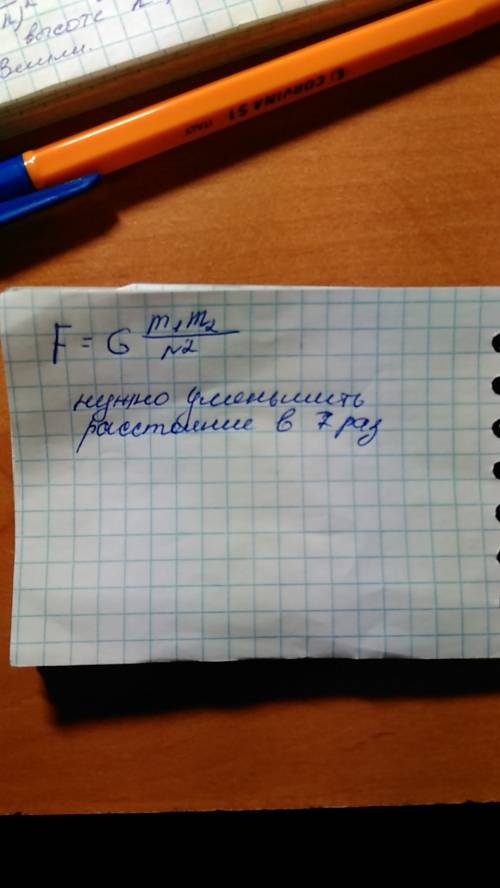 высоте
Земли.
CORVINA 51 ITALY
F = G m₁m₂/r²
нужно уменьшить
расстояние в 7 раз